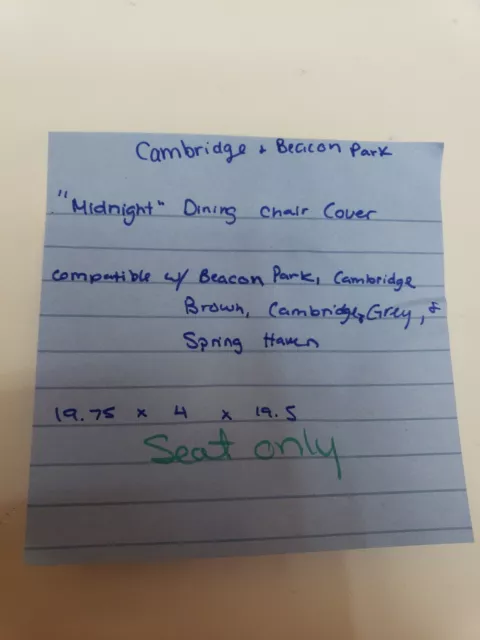 Cambridge & Beacon Park
"Midnight" Dining Chair Cover
compatible w/ Beacon Park, Cambridge
Brown, Cambridge Grey, &
Spring Haven
19.75 x 4 x 19.5
Seat only